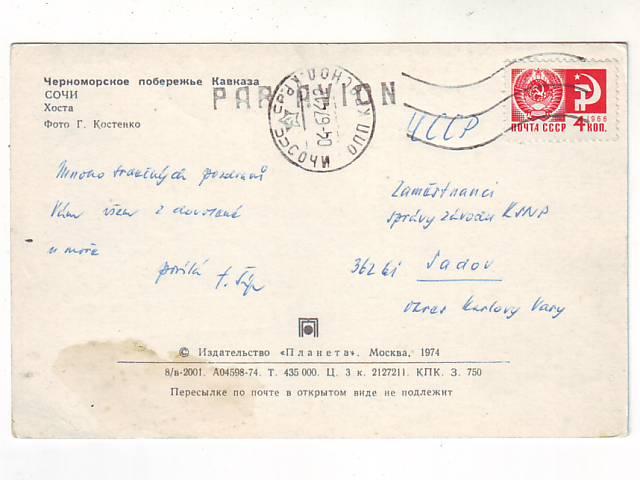 Черноморское побережье Кавказа
СОЧИ
Хоста
Фото Г. Костенко
PAR AVION
ПОЧТА СССР 4 КОП.
1966
ЧССР
Mnoho srdečných pozdravů
Vám všem z dovolené
u moře
posílá
Zaměstnanci
správy závodu
362 61 Sadov
okres Karlovy Vary
© Издательство «Планета». Москва, 1974
8/в-2001. А04598-74. Т. 435 000. Ц. 3 к. 2127211. КПК. З. 750
Пересылке по почте в открытом виде не подлежит